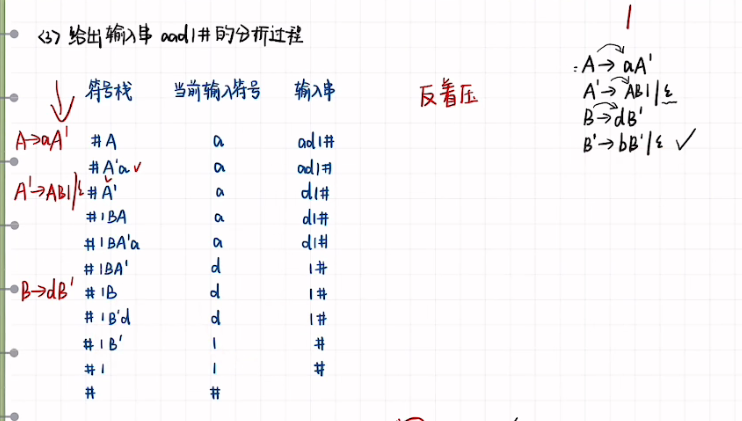 (3) 给出输入串 aad1# 的分析过程
符号栈 当前输入符号 输入串
A→aA' #A a ad1#
#A'a ✓ a ad1#
A'→AB1|ε #A' a d1#
#1BA a d1#
#1BA'a a d1#
#1BA' d 1#
B→dB' #1B d 1#
#1B'd d 1#
#1B' 1 #
#1 1 #
# #
反着压
1
A→aA'
A'→AB1|ε
B→dB'
B'→bB'|ε ✓